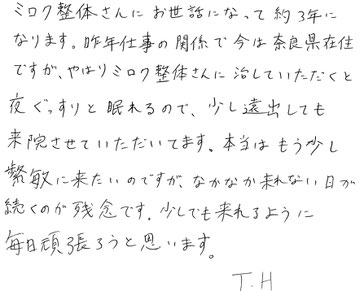 ミロク整体さんに お世話になって 約3年に
なります。昨年仕事の関係で 今は奈良県在住
ですが、やはりミロク整体さんに 治していただくと
夜 ぐっすりと 眠れるので、少し遠出しても
来院させていただいてます。本当は もう少し
繁敏に来たいのですが、なかなか来れない 日が
続くのが 残念です。少しでも来れるように
毎日頑張ろうと思います。
T.H